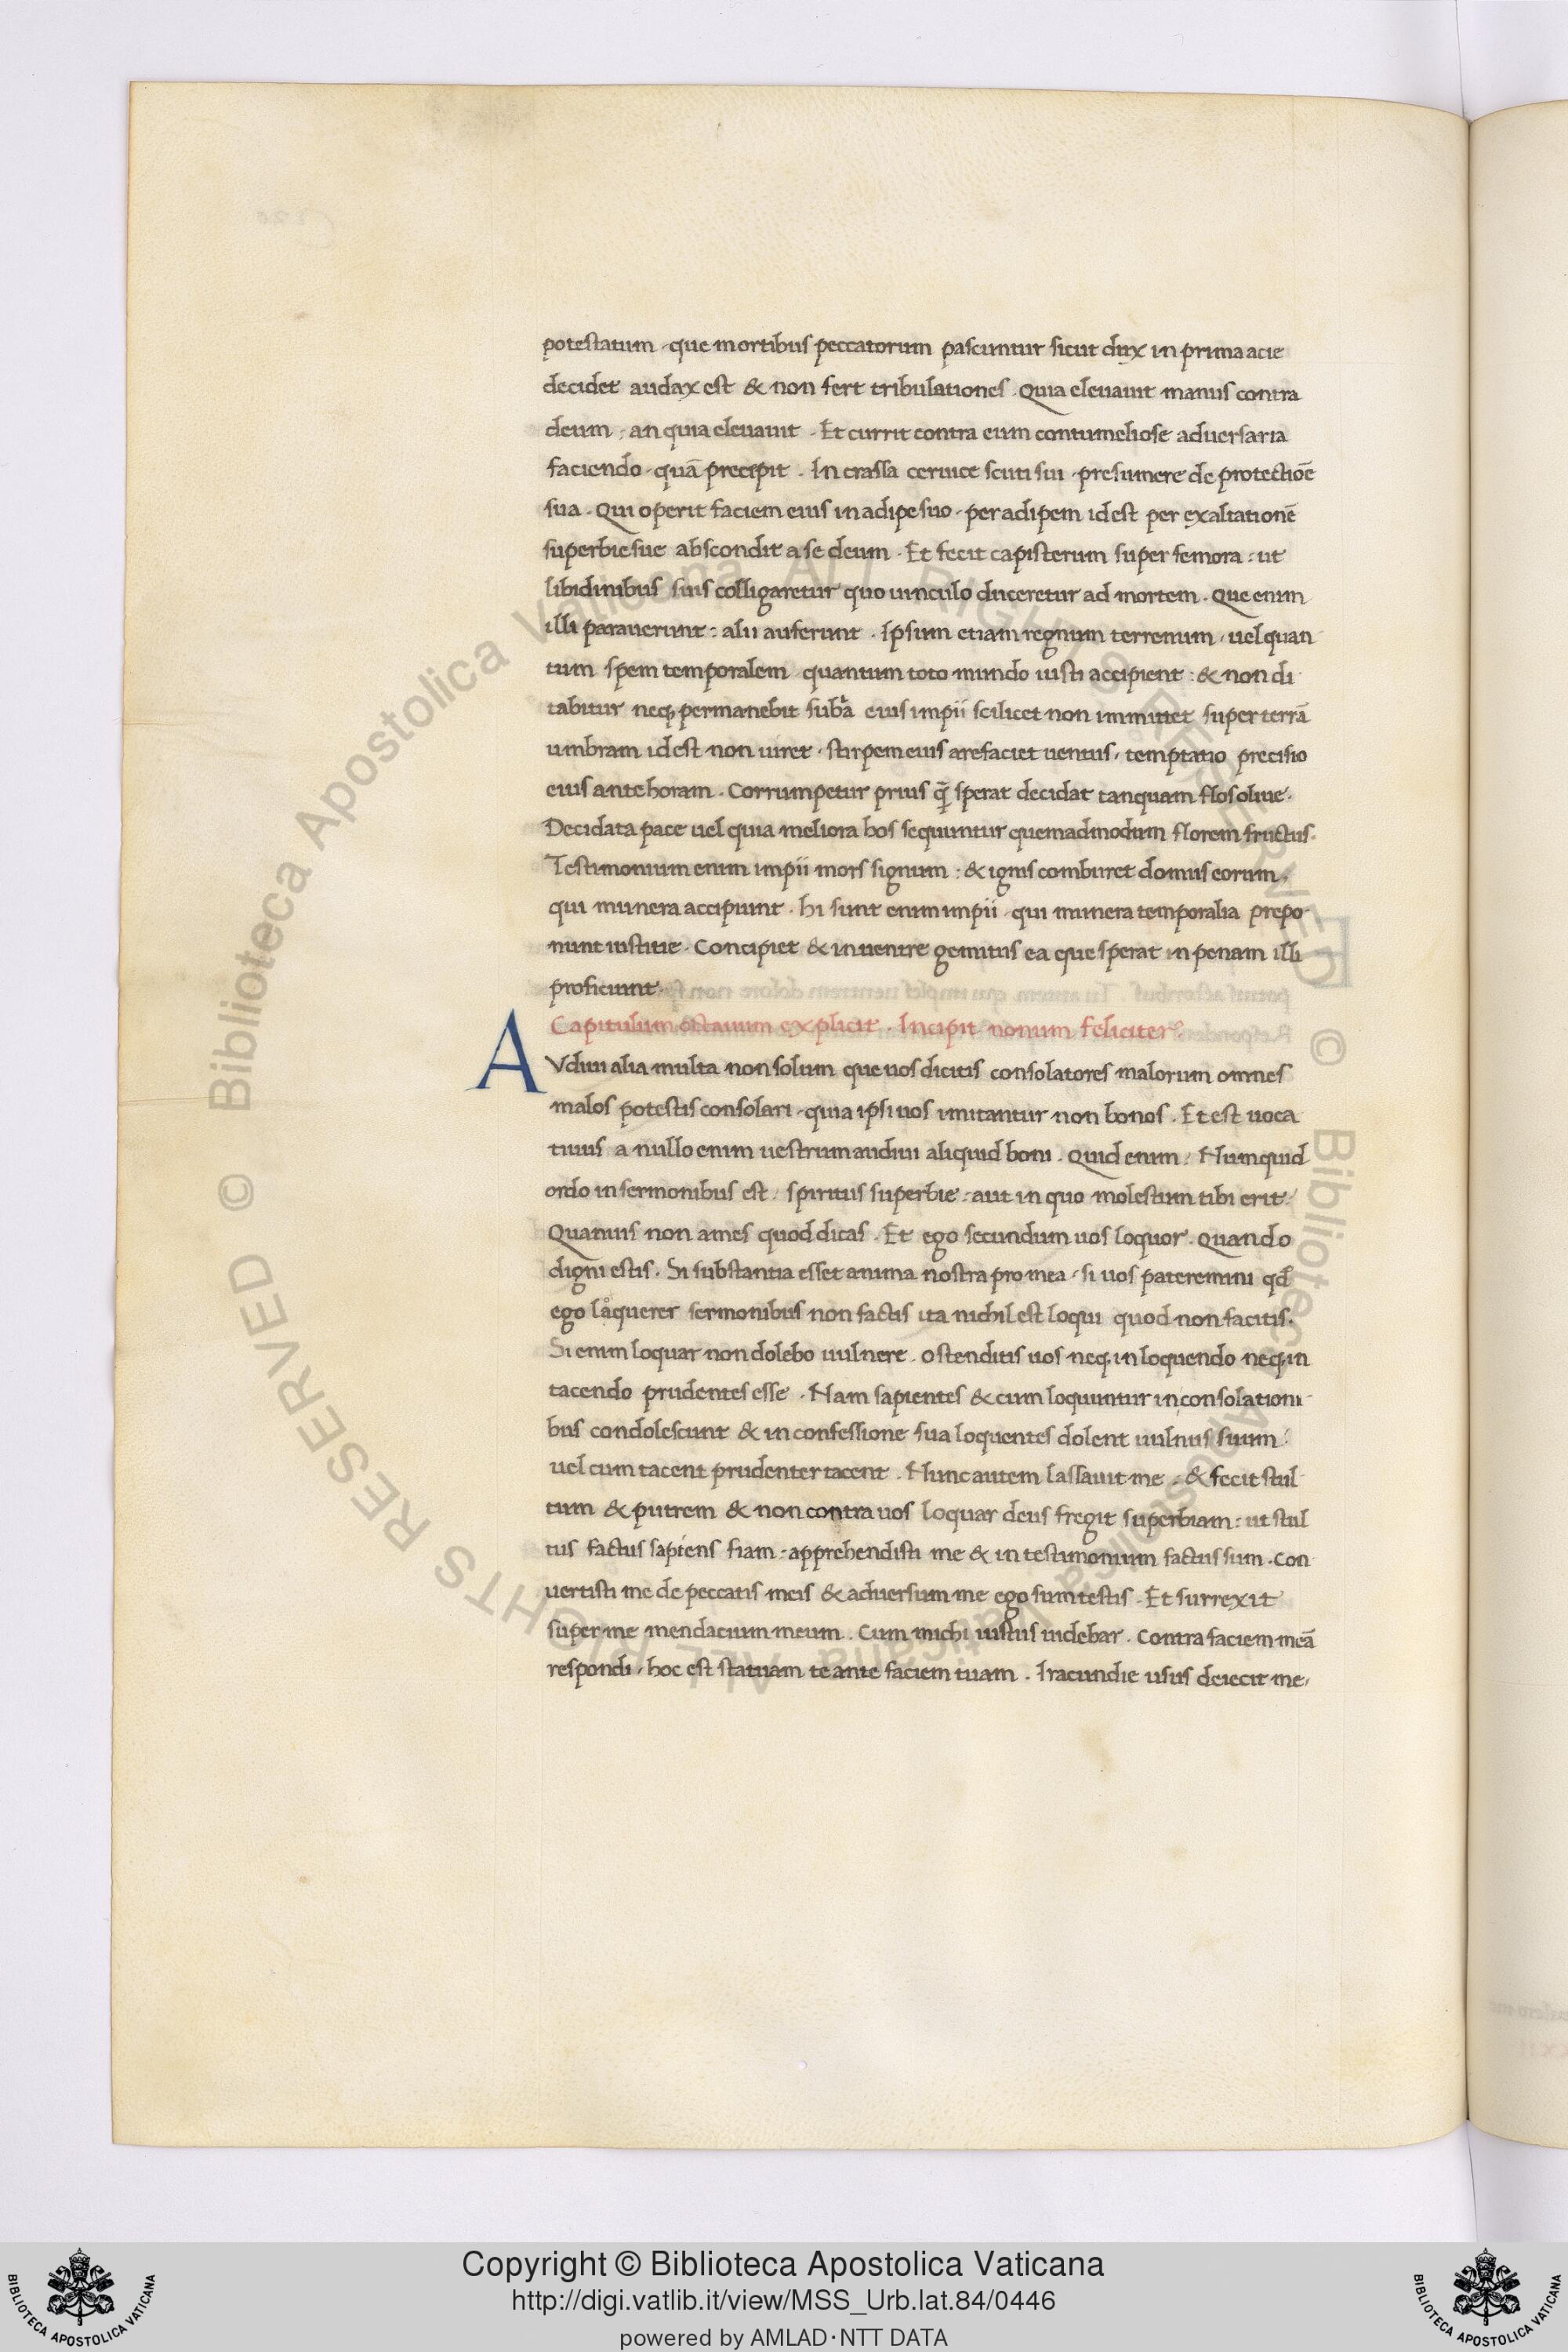 potestatum · que mortibus peccatorum pascuntur sicut dux in prima acie
decidet audax est & non fert tribulationes . Quia eleuauit manus contra
deum : an quia eleuauit . Et currit contra eum contumeliose aduersaria
faciendo · quā precipit . In crassa ceruice scuti sui · presumere de protectiōe
sua . Qui operit faciem eius in adipe suo · per adipem id est per exaltationē
superbie sue abscondit a se deum . Et fecit capisterum super femora : ut
libidinibus suis colligaretur quo uinculo duceretur ad mortem . Que enim
illi parauerunt : alii auferunt . Ipsum etiam regnum terrenum · uel quan
tum spem temporalem quantum toto mundo iusti accipient : & non di
tabitur neq; permanebit subā eius impii scilicet non immittet super terrā
umbram id est non uiret · stirpem eius arefaciet uentus · temptatio precisio
eius ante horam . Corrumpetur prius q̄ sperat decidat tanquam flos oliue ·
Decidat a pace uel quia meliora hos sequuntur quemadmodum florem fructus ·
Testimonium enim impii mors signum : & ignis comburet domus eorum ·
qui munera accipiunt . hi sunt enim impii · qui munera temporalia prepo
nunt iustitie . Concipiet & in uentre gemitus ea que sperat in penam illi
proficiunt ·
Capitulum octauum explicit . Incipit nonum feliciter
AVdiui alia multa non solum que uos dicitis consolatores malorum omnes
malos potestis consolari · quia ipsi uos imitantur non bonos . Et est uoca
tiuus a nullo enim uestrum audiui aliquid boni . Quid enim : Numquid
ordo in sermonibus est : spiritus superbie : aut in quo molestum tibi erit :
Quamuis non ames quod dicas . Et ego secundum uos loquor . Quando
digni estis . Si substantia esset anima nostra pro mea · si uos pateremini qd̄
ego låquerer sermonibus non factis ita nichil est loqui quod non facitis .
Si enim loquar non dolebo uulnere . Ostenditis uos neq; in loquendo neq; in
tacendo prudentes esse . Nam sapientes & cum loquuntur in consolationi
bus condolescunt & in confessione sua loquentes dolent uulnus suum :
uel cum tacent prudenter tacent . Nunc autem lassauit me : & fecit stul
tum & putrem & non contra uos loquar deus fregit superbiam : ut stul
tus factus sapiens fiam · apprehendisti me & in testimonium factus sum . Con
uertisti me de peccatis meis & aduersum me ego sum testis . Et surrexit
super me mendacium meum . Cum michi iustus uidebar . Contra faciem meā
respondi · hoc est statuam te ante faciem tuam . Iracundie usus deiecit me ·
Copyright © Biblioteca Apostolica Vaticana
http://digi.vatlib.it/view/MSS_Urb.lat.84/0446
powered by AMLAD·NTT DATA
BIBLIOTECA APOSTOLICA VATICANA
BIBLIOTECA APOSTOLICA VATICANA
© Biblioteca Apostolica Vaticana ALL RIGHTS RESERVED © Biblioteca Apostolica Vaticana ALL RIGHTS RESERVED